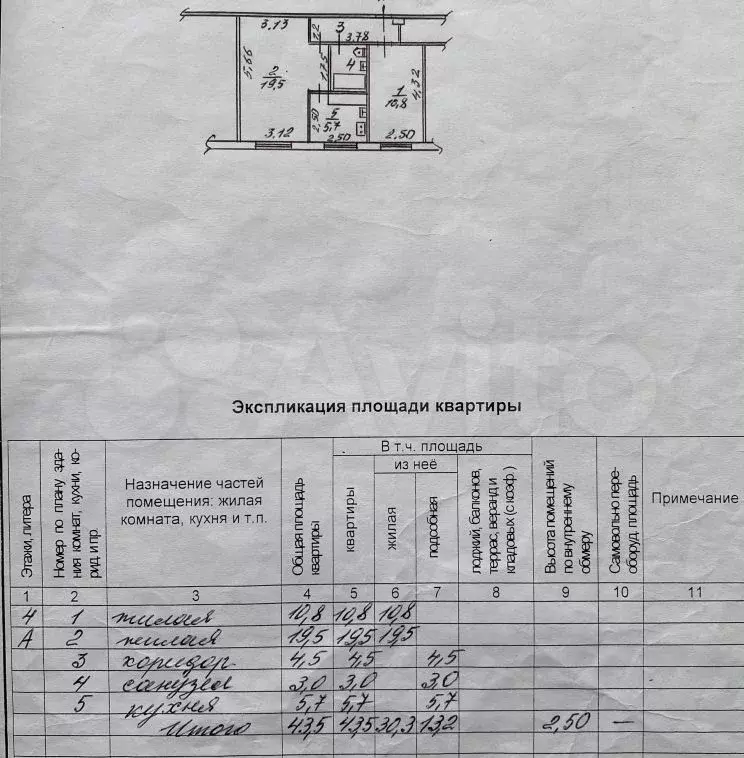 3.13
1.2
3
3.78
5,66
2
19.5
1.75
4
1
10,8
4,32
2,50
5
5,7
3,12
2,50
2,50
Avito
Экспликация площади квартиры
Этажи, литера
Номер по плану зда-
ния комнат, кухни, ко-
рид и пр.
Назначение частей
помещения: жилая
комната, кухня и т.п.
Общая площадь
квартиры
В т.ч. площадь
из неё
квартиры
жилая
подсобная
лоджий, балконов,
террас, веранд и
кладовых (с коэф.)
Высота помещений
по внутреннему
обмеру
Самовольно пере-
оборуд. площадь
Примечание
1 2 3 4 5 6 7 8 9 10 11
4 1 жилая 10,8 10,8 10,8
А 2 жилая 19,5 19,5 19,5
3 коридор 4,5 4,5 4,5
4 санузел 3,0 3,0 3,0
5 кухня 5,7 5,7 5,7
Итого 43,5 43,5 30,3 13,2 2,50 —